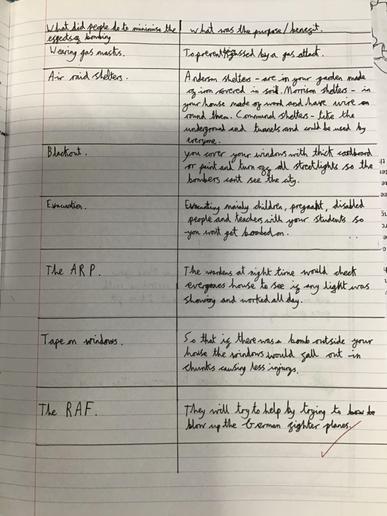 What did people do to minimise the
effects of bombing
What was the purpose/benefit.
Wearing gas masks.
To prevent gassed by a gas attack.
Air raid shelters.
Anderson shelters - are in your garden made
of iron covered in soil. Morrison shelters - in
your house made of wood and have wire on
round them. Command shelters - like the
underground and tunnels and could be used by
everyone.
Blackout.
you cover your windows with thick cardboard
or paint and turn off all streetlights so the
bombers cant see the city.
Evacuation.
Evacuating mainly children, pregnant, disabled
people and teachers with your students so
you wont get bombed on.
The A.R.P.
The wardens at night time would check
everyones house to see if any light was
showing and worked all day.
Tape on windows.
So that if there was a bomb outside your
house the windows would fall out in
chunks causing less injurys.
The RAF.
They will try to help by trying to
blow up the German fighter planes.